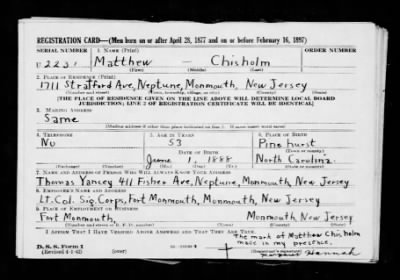 REGISTRATION CARD—(Men born on or after April 28, 1877 and on or before February 16, 1897)
SERIAL NUMBER 1. NAME (Print) ORDER NUMBER
U 223 Matthew – Chisholm
(First) (Middle) (Last)
2. PLACE OF RESIDENCE (Print)
1711 Stratford Ave, Neptune, Monmouth, New Jersey
(Number and street) (Town, township, village, or city) (County) (State)
[THE PLACE OF RESIDENCE GIVEN ON THE LINE ABOVE WILL DETERMINE LOCAL BOARD
JURISDICTION; LINE 2 OF REGISTRATION CERTIFICATE WILL BE IDENTICAL]
3. MAILING ADDRESS
Same
[Mailing address if other than place indicated on line 2. If same insert word same]
4. TELEPHONE 5. AGE IN YEARS 6. PLACE OF BIRTH
No 53 Pinehurst
DATE OF BIRTH (Town or county)
June 1, 1888 North Carolina
(Exchange) (Number) (Mo.) (Day) (Yr.) (State or country)
7. NAME AND ADDRESS OF PERSON WHO WILL ALWAYS KNOW YOUR ADDRESS
Thomas Yancey 411 Fisher Ave, Neptune, Monmouth, New Jersey
8. EMPLOYER'S NAME AND ADDRESS
Lt. Col. Sig. Corps, Fort Monmouth, Monmouth, New Jersey
9. PLACE OF EMPLOYMENT OR BUSINESS
Fort Monmouth, Monmouth, New Jersey
(Number and street or R. F. D. number) (Town) (County) (State)
I AFFIRM THAT I HAVE VERIFIED ABOVE ANSWERS AND THAT THEY ARE TRUE.
The mark of Matthew Chisholm
made in my presence.
D. S. S. Form 1
(Revised 4-1-42) Hannah